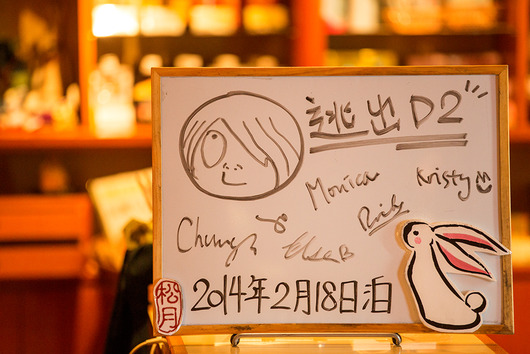 逃出D2
Monica
Kristy
Rick
2014年2月18日泊
松月